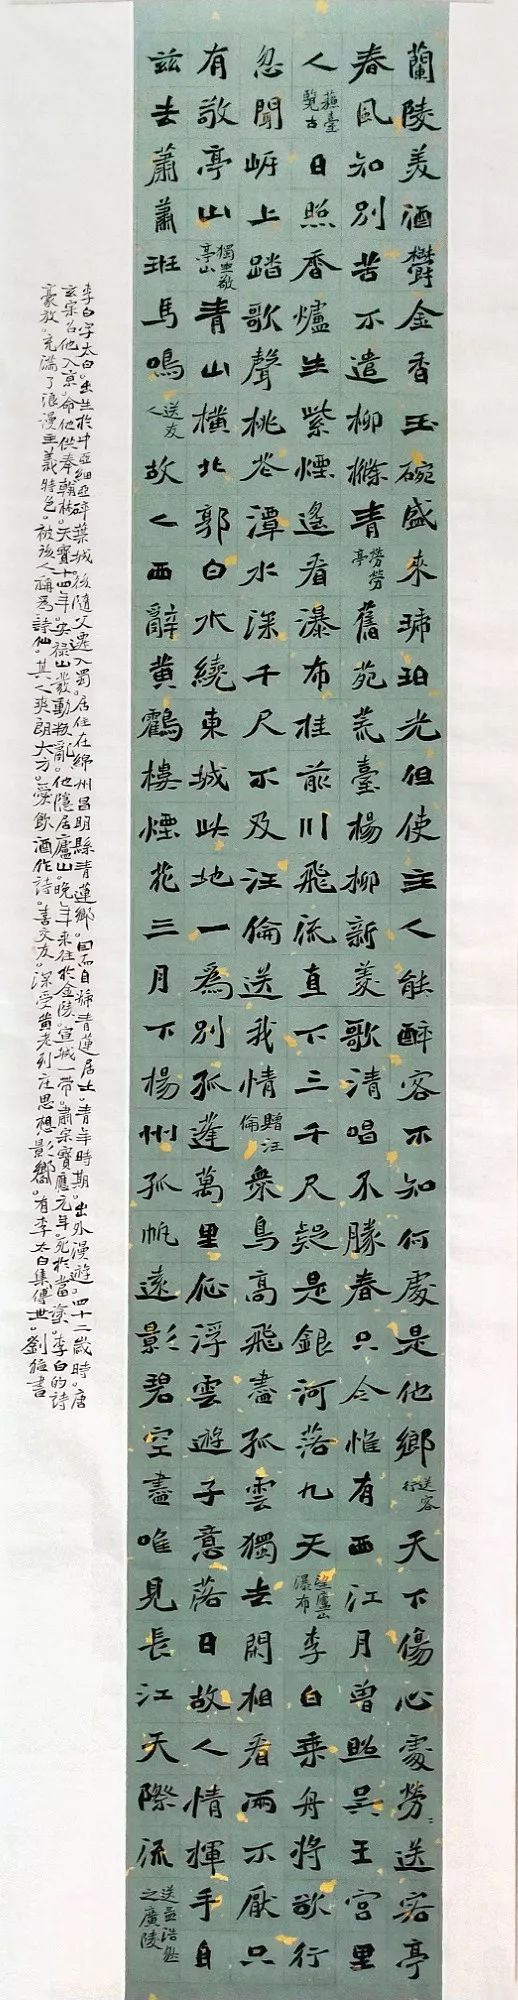 蘭陵美酒鬱金香玉碗盛來琥珀光但使主人能醉客不知何處是他鄉送客行天下傷心處勞勞送客亭
春風知別苦不遣柳條青勞勞亭舊苑荒臺楊柳新菱歌清唱不勝春只今惟有西江月曾照吳王宮里
人蘇臺覽古日照香爐生紫煙遙看瀑布挂前川飛流直下三千尺疑是銀河落九天望廬山瀑布李白乘舟將欲行
忽聞岍上踏歌聲桃花潭水深千尺不及汪倫送我情贈汪倫衆鳥高飛盡孤雲獨去閑相看兩不厭只
有敬亭山獨坐敬亭山青山橫北郭白水繞東城此地一爲別孤蓬萬里征浮雲遊子意落日故人情揮手自
茲去蕭蕭班馬鳴送友人故人西辭黃鶴樓煙花三月下楊州孤帆遠影碧空盡唯見長江天際流送孟浩然之廣陵
李白字太白。出生於中亞細亞碎葉城。後隨父遷入蜀。居住在綿州昌明縣青蓮鄉。因而自號青蓮居士。青年時期。出外漫遊。四十二歲時。唐
玄宗召他入京。命他供奉翰林。天寶十四年。安禄山發動叛亂。他隱居廬山。晚年來往於金陵。宣城一帶。肅宗寶應元年。死於當塗。李白的詩
豪放。充滿了浪漫主義特色。被後人稱爲詩仙。其人爽朗大方。愛飲酒作詩。喜交友。深受黃老列庄思想影響。有李太白集傳世。劉恆書